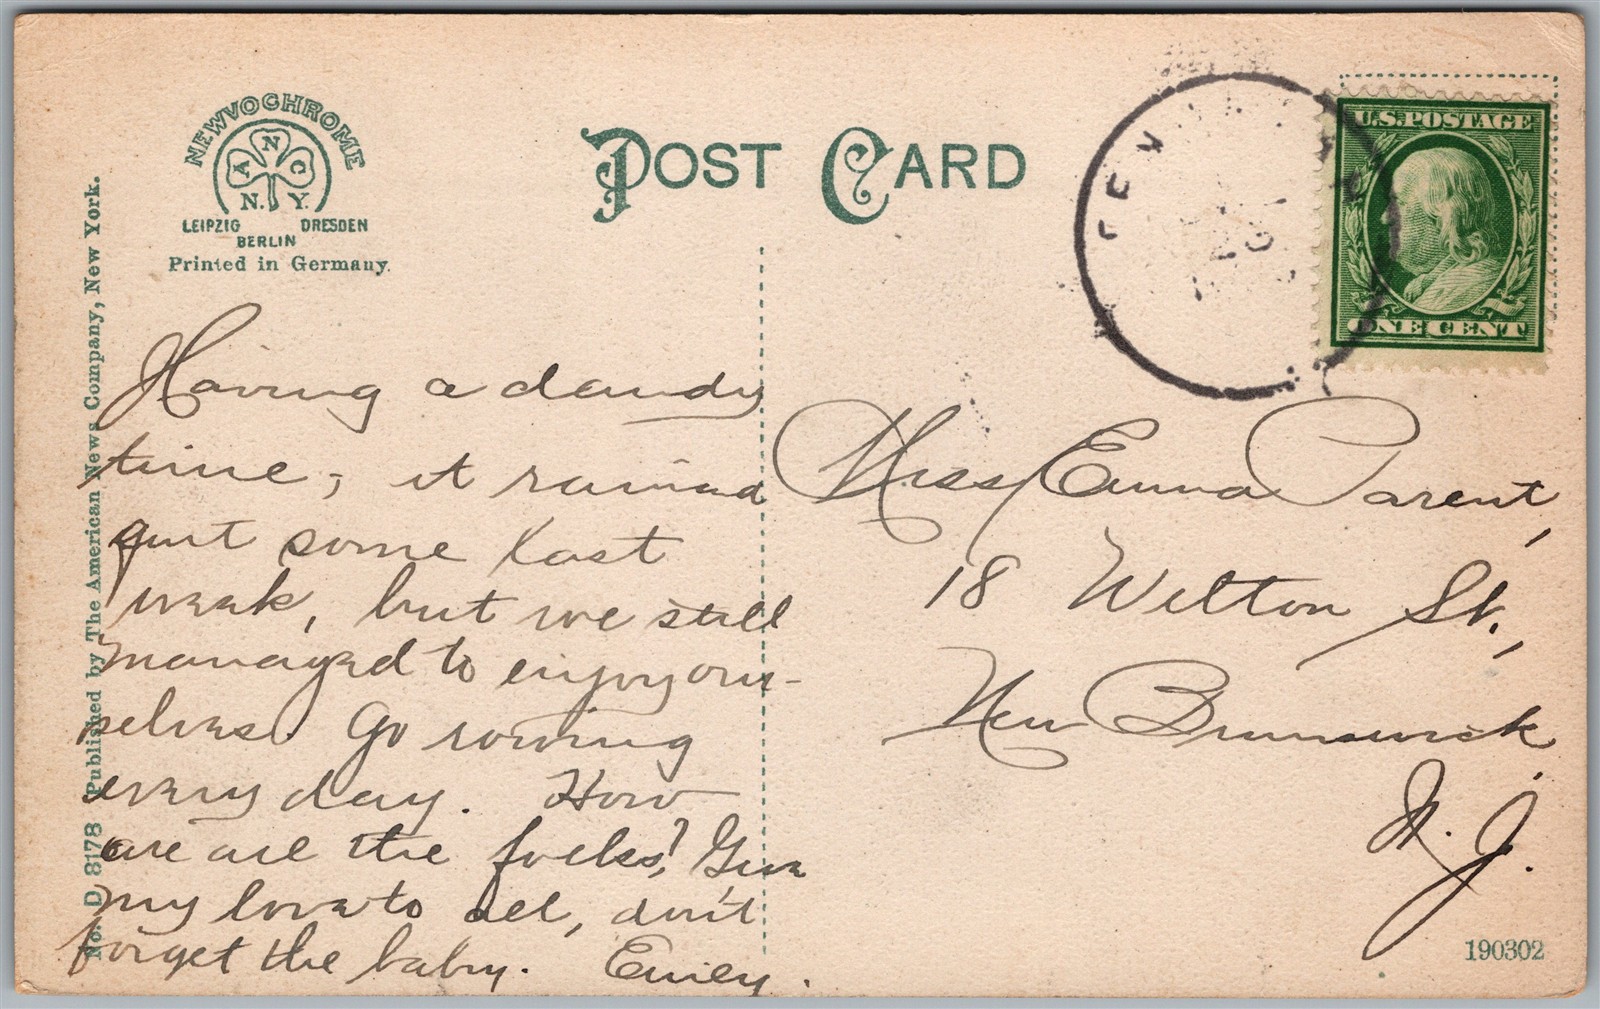 NEWVOCHROME
A N C
N. Y.
LEIPZIG DRESDEN
BERLIN
Printed in Germany.
POST CARD
U.S. POSTAGE
ONE CENT
No. D 8178 Published by The American News Company, New York.
Having a dandy
time; it rained
quit some last
week, but we still
managed to enjoy our-
selves. Go rowing
every day. How
are all the folks? Give
my love to all, don't
forget the baby. Emily.
Miss Emma Parent,
18 Welton St.,
New Brunswick,
N. J.
190302